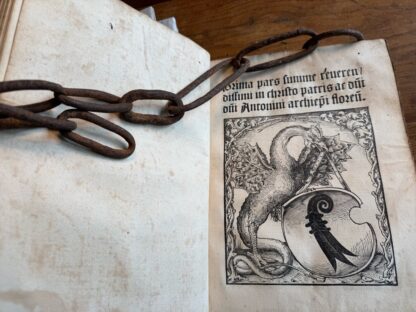 Prima pars summe reveren
dissimi in christo patris ac dñi
dñi Antonini archiepi floreñ.